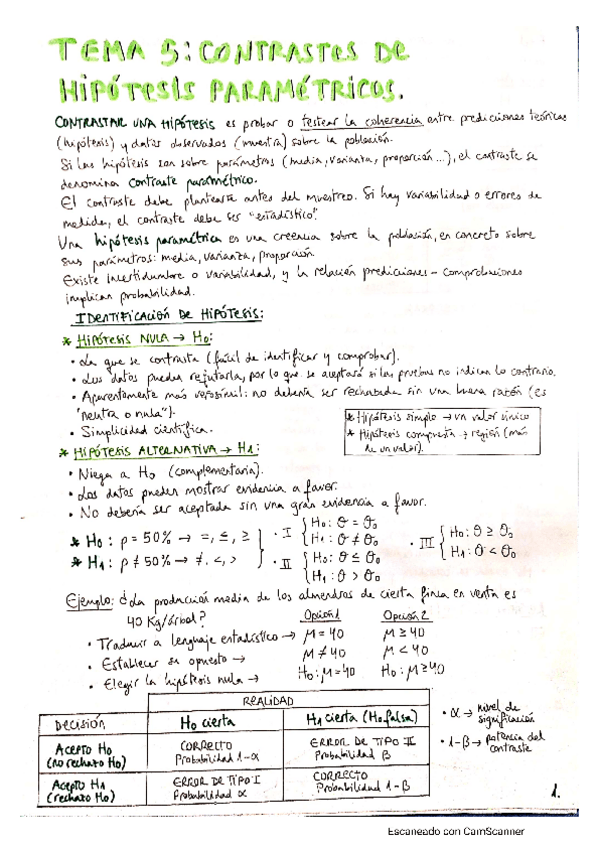 TEMA 5: CONTRASTES DE
HIPÓTESIS PARAMÉTRICOS.
CONTRASTAR UNA HIPÓTESIS es probar o testear la coherencia entre predicciones teóricas
(hipótesis) y datos observados (muestra) sobre la población.
Si las hipótesis son sobre parámetros (media, varianza, proporción...), el contraste se
denomina contraste paramétrico.
El contraste debe plantearse antes del muestreo. Si hay variabilidad o errores de
medida, el contraste debe ser "estadístico".
Una hipótesis paramétrica es una creencia sobre la población, en concreto sobre
sus parámetros: media, varianza, proporción.
Existe incertidumbre o variabilidad, y la relación predicciones - comprobaciones
implican probabilidad.
IDENTIFICACIÓN DE HIPÓTESIS:
* HIPÓTESIS NULA → H0:
• La que se contrasta (fácil de identificar y comprobar).
• Los datos pueden refutarla, por lo que se aceptará si las pruebas no indican lo contrario.
• Aparentemente más verosímil: no debería ser rechazada sin una buena razón (es
"neutra o nula").
• Simplicidad científica.
* Hipótesis simple → un valor único
* Hipótesis compuesta → región (más
de un valor).
* HIPÓTESIS ALTERNATIVA → H1:
• Niega a H0 (complementaria).
• Los datos pueden mostrar evidencia a favor.
• No debería ser aceptada sin una gran evidencia a favor.
* H0: p = 50% → =, ≤, ≥
* H1: p ≠ 50% → ≠, <, >
• I { H0: θ = θ0
H1: θ ≠ θ0
• II { H0: θ ≤ θ0
H1: θ > θ0
• III { H0: θ ≥ θ0
H1: θ < θ0
Ejemplo: ¿La producción media de los almendros de cierta finca en venta es
40 Kg/árbol? Opción 1 Opción 2
• Traducir a lenguaje estadístico → μ = 40 μ ≥ 40
• Establecer su opuesto → μ ≠ 40 μ < 40
• Elegir la hipótesis nula → H0: μ = 40 H0: μ ≥ 40
REALIDAD
Decisión H0 cierta H1 cierta (H0 falsa)
Acepto H0 (no rechazo H0) CORRECTO Probabilidad 1-α ERROR DE TIPO II Probabilidad β
Acepto H1 (rechazo H0) ERROR DE TIPO I Probabilidad α CORRECTO Probabilidad 1-β
• α → nivel de
significación
• 1-β → potencia del
contraste
1.
Escaneado con CamScanner